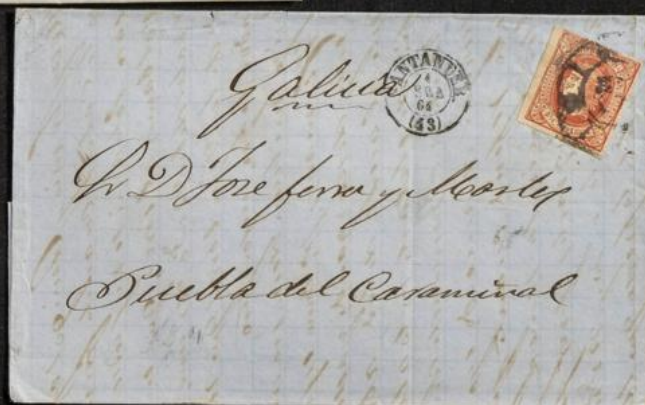 Galicia
SANTANDER
1
64
(43)
Sr D Jose ferrer y Mortes
Puebla del Caraminal